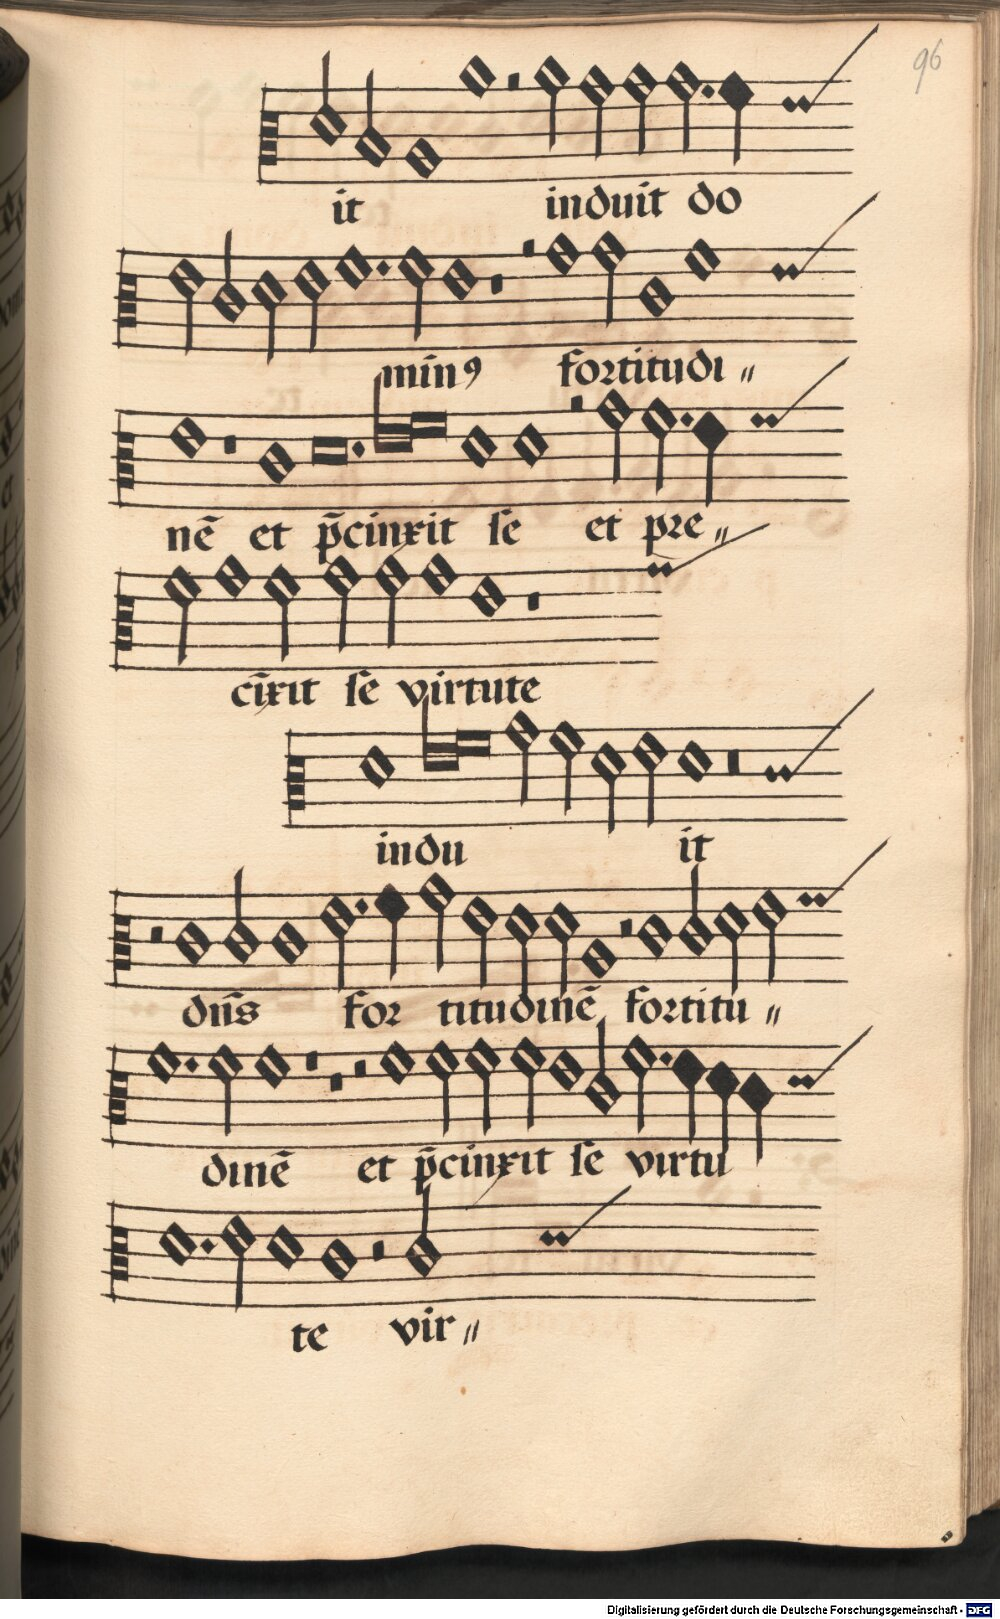 96
it induit do
min9 fortitudi〃
nē et p̄cinxit se et pre〃
cīxit se virtute
indu it
dn̄s for titudinē fortitu〃
dinē et p̄cinxit se virtu
te vir〃
Digitalisierung gefördert durch die Deutsche Forschungsgemeinschaft - DFG